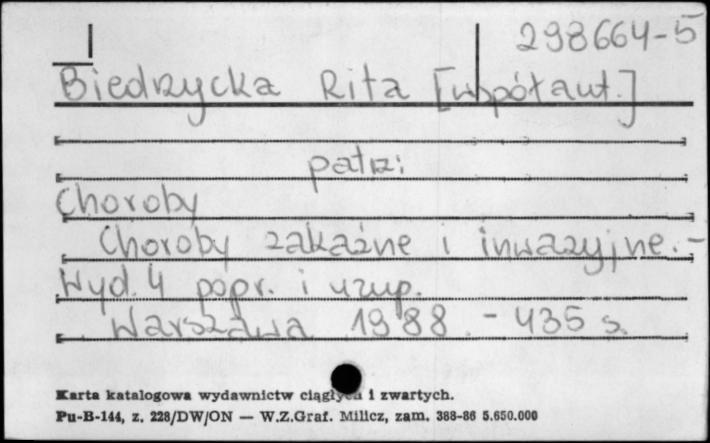 298664-5
Biedrzycka Rita [współaut.]
patrz:
Choroby
Choroby zakaźne i inwazyjne.-
Wyd. 4 popr. i uzup.
Warszawa 1988. - 435 s.
Karta katalogowa wydawnictw ciągłych i zwartych.
Pu-B-144, z. 228/DW/ON — W.Z.Graf. Milicz, zam. 388-86 5.650.000